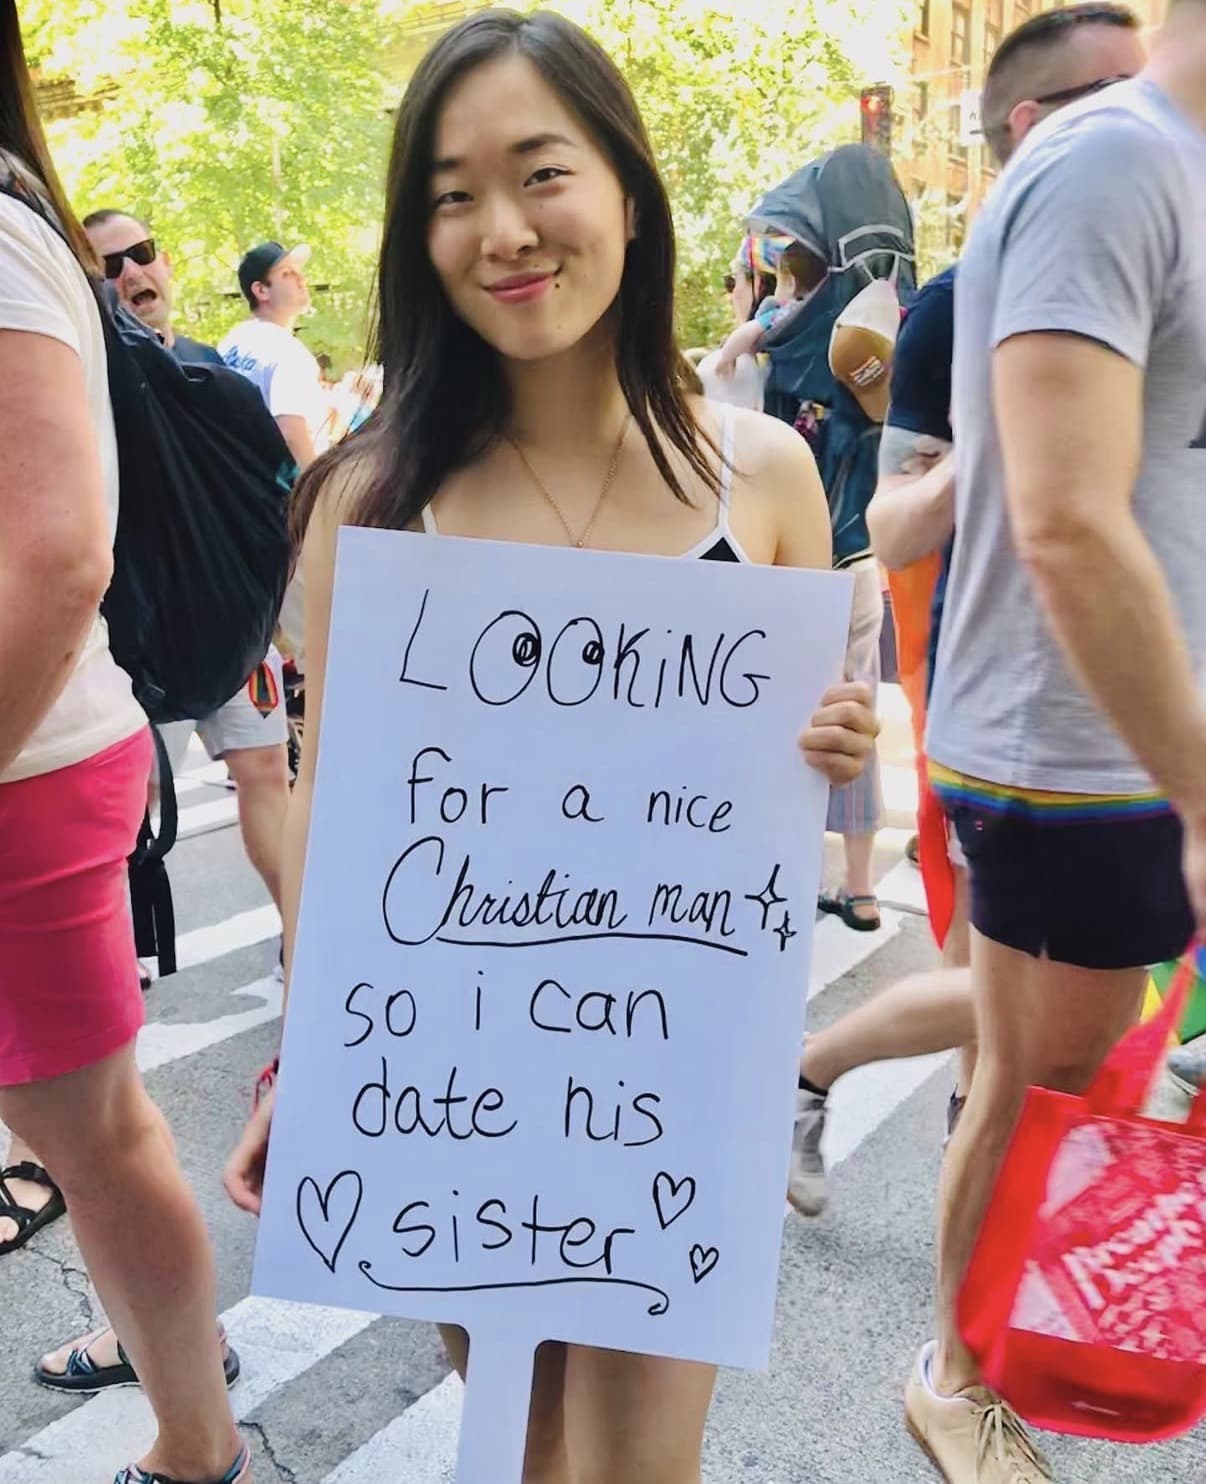 LOOKiNG
for a nice
Christian man
so i can
date his
sister